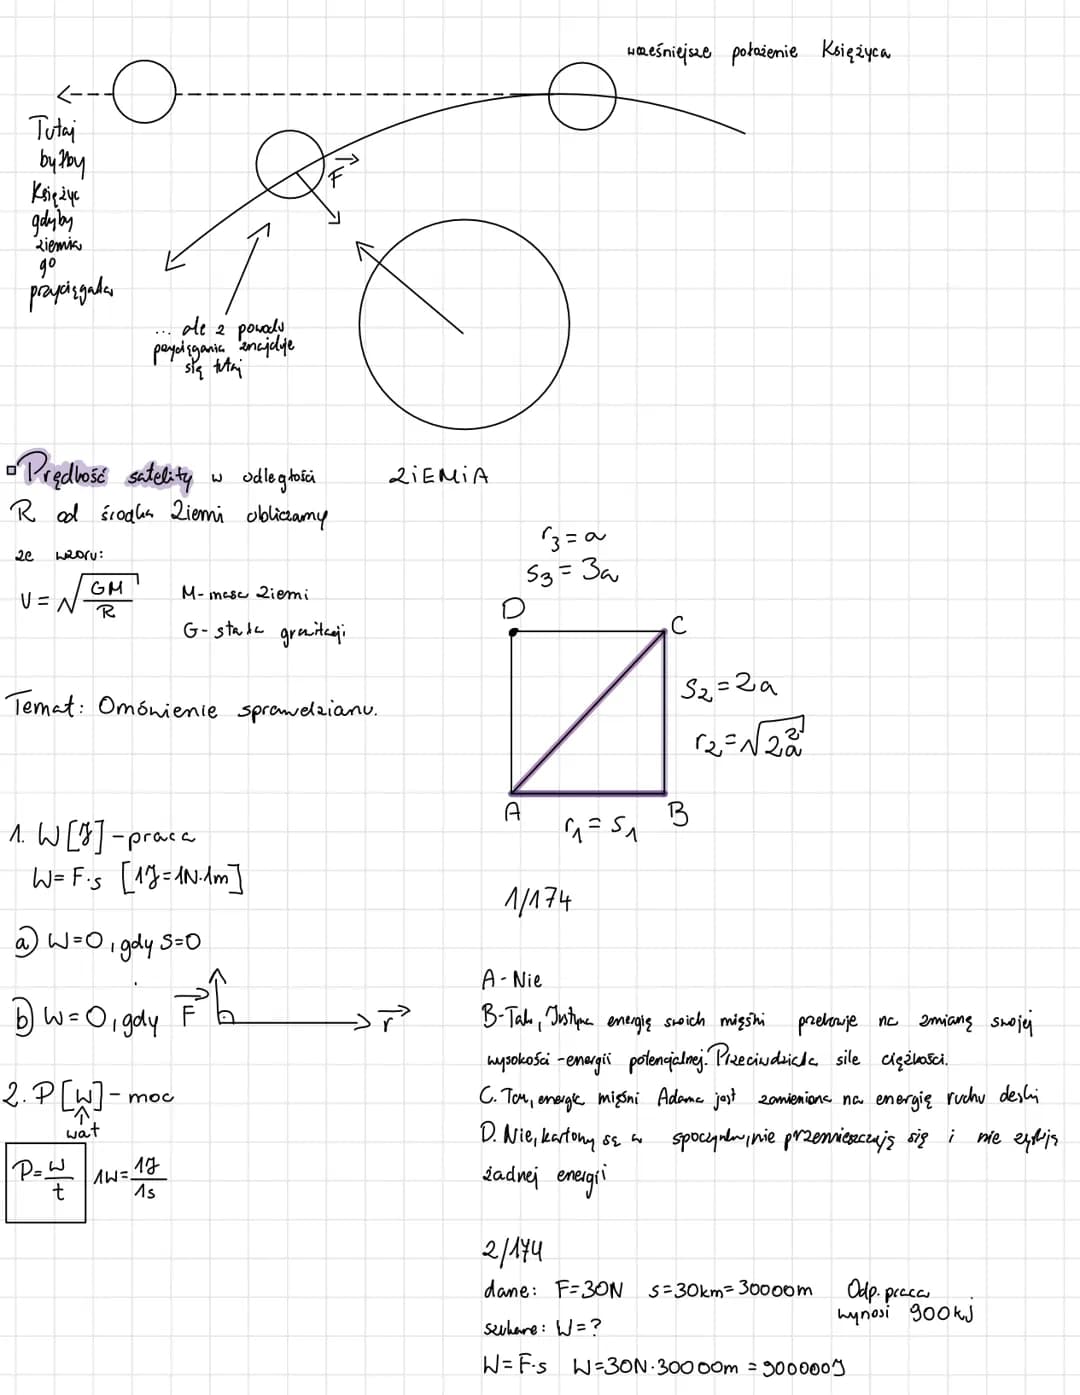 wcześniejsze położenie Księżyca
Tutaj
byłby
Księżyc
gdyby
ziemia
go
przyciągała
F
... ale z powodu
przyciągania znajduje
się tutaj
ZIEMIA
Prędkość satelity w odległości
R od środka Ziemi obliczamy
ze wzoru:
V = √GM/R
M - masa Ziemi
G - stała grawitacji
r₃ = a
s₃ = 3a
D
C
s₂ = 2a
r₂ = √2a²
A
B
r₁ = s₁
Temat: Omówienie sprawdzianu.
1. W [J] - praca
W = F·s [1J = 1N·1m]
a) W = 0, gdy s = 0
b) W = 0, gdy F r
2. P [W] - moc
wat
P = W/t 1W = 1J/1s
1/174
A - Nie
B - Tak, Justyna energię swoich mięśni przekazuje na zmianę swojej
wysokości - energii potencjalnej. Przeciwdziała sile ciężkości.
C. Tak, energia mięśni Adama jest zamieniona na energię ruchu deski
D. Nie, kartony są w spoczynku, nie przemieszczają się i nie zyskują
żadnej energii
2/174
dane: F = 30N s = 30km = 30000m
szukane: W = ?
W = F·s W = 30N·30000m = 900000J
Odp. praca
wynosi 900kJ